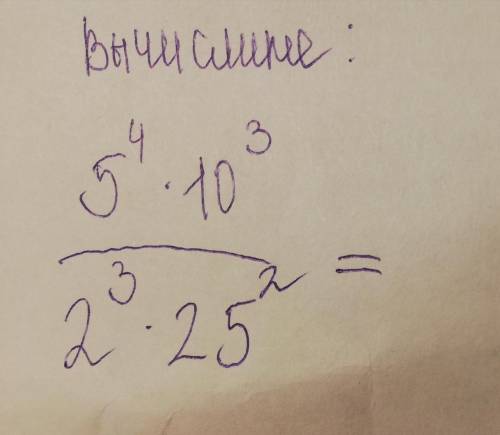 Вычислите:
5⁴ · 10³
2³ · 25² =